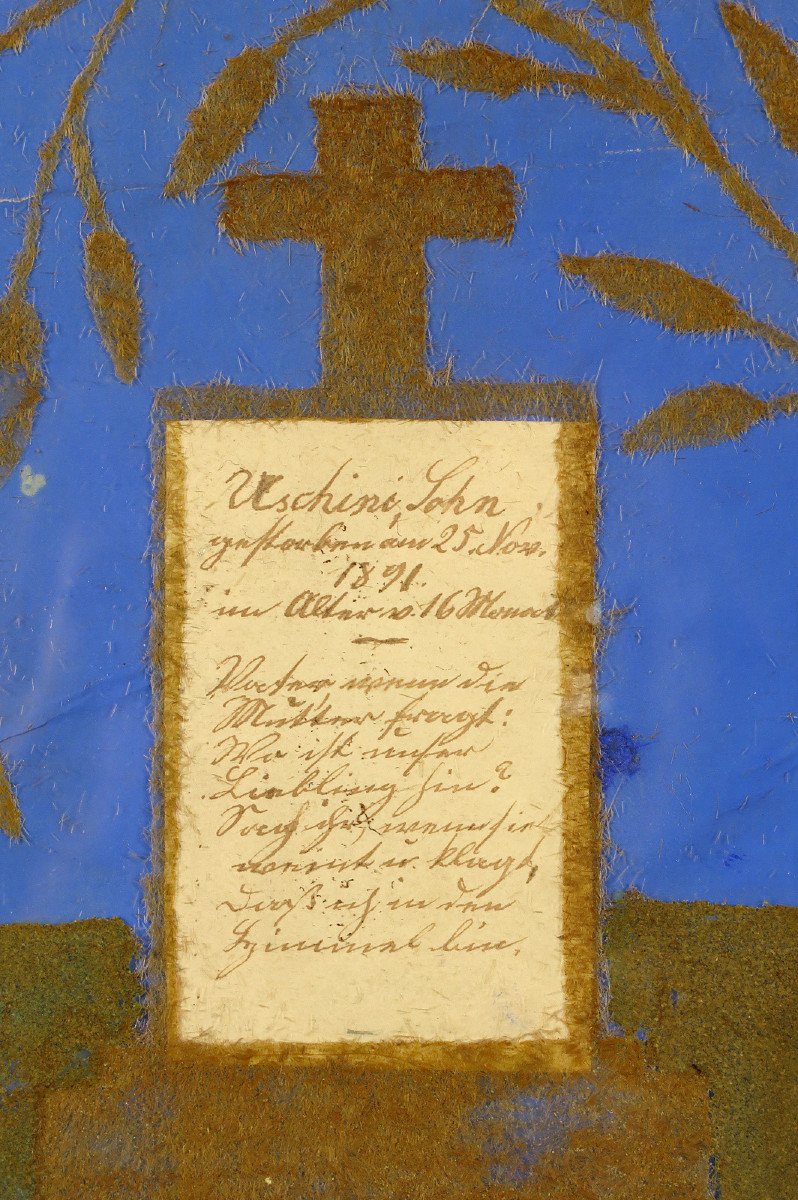 Uschini, Sohn
gestorben am 25. Nov.
1891.
im Alter v. 16 Monat
Vater, wenn die
Mutter fragt:
Wo ist unser
Liebling hin?
Sag ihr, wenn sie
weint u. klagt,
Daß ich in den
Himmel bin.